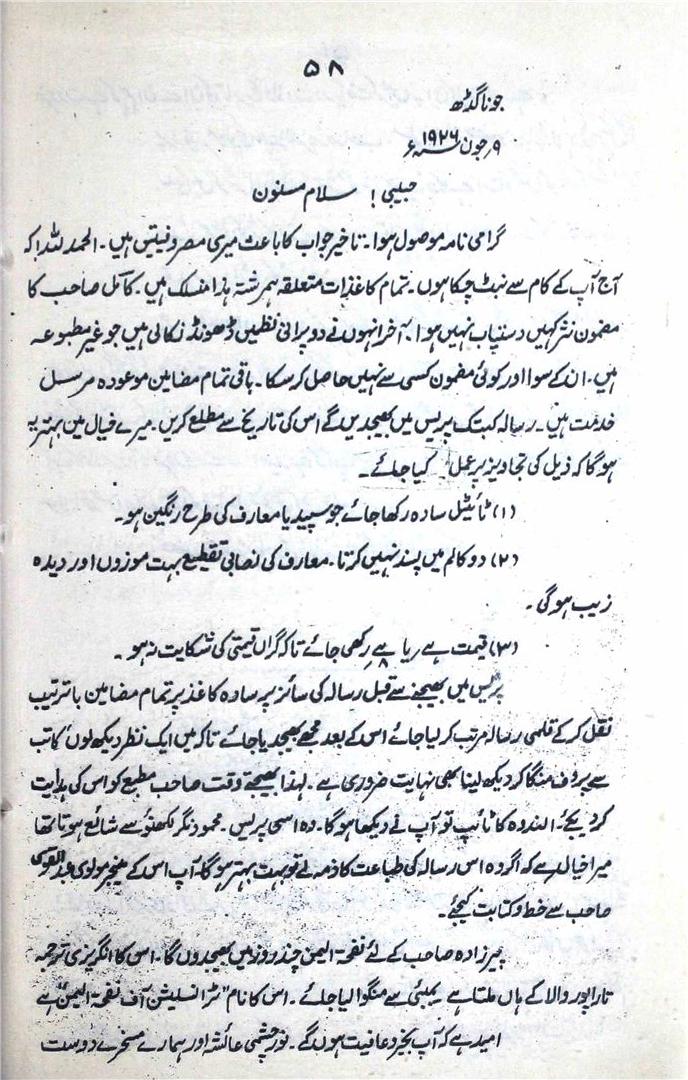 ۵۸
جوناگڈھ
۹؍ جون ۱۹۲۶ء
حبیبی! سلام مسنون
گرامی نامہ موصول ہوا۔ تاخیر جواب کا باعث میری مصروفیتیں ہیں۔ الحمد للہ! کہ
آج آپ کے کام سے نبٹ چکا ہوں۔ تمام کاغذات متعلقہ ہمرشتۂ ہذا منسلک ہیں۔ کامل صاحب کا
مضمون نثر کہیں دستیاب نہیں ہوا۔ آخر انہوں نے دو پرانی نظمیں ڈھونڈ نکالی ہیں جو غیر مطبوعہ
ہیں۔ ان کے سوا اور کوئی مضمون کسی سے نہیں حاصل کر سکا۔ باقی تمام مضامین موعودہ مرسل
خدمت ہیں۔ رسالہ کب تک پریس میں بھیجدیں گے اس کی تاریخ سے مطلع کریں۔ میرے خیال میں بہتر یہ
ہو گا کہ ذیل کی تجاویز پر عمل کیا جائے۔
(۱) ٹائیٹل سادہ رکھا جائے جو سپید یا معارف کی طرح رنگین ہو۔
(۲) دو کالم میں پسند نہیں کرتا۔ معارف کی نصابی تقطیع بہت موزوں اور دیدہ
زیب ہو گی۔
(۳) قیمت رکھی جائے تاکہ گراں قیمتی کی شکایت نہ ہو۔
پریس میں بھیجنے سے قبل رسالہ کی سائز پر سادہ کاغذ پر تمام مضامین با ترتیب
نقل کر کے قلمی رسالہ مرتب کر لیا جائے اس کے بعد مجھے بھیجدیا جائے تاکہ میں ایک نظر دیکھ لوں کاتب
سے پروف منگا کر دیکھ لینا بھی نہایت ضروری ہے۔ لہذا بھیجتے وقت صاحب مطبع کو اس کی ہدایت
کر دیجئے۔ الندوہ کا ٹائپ تو آپ نے دیکھا ہو گا۔ وہ اسی پریس۔ محمود نگر لکھنؤ سے شائع ہوتا تھا
میرا خیال ہے کہ اگر وہ اس رسالہ کی طباعت کا ذمہ لے تو بہت بہتر ہو گا، آپ اس کے منیجر مولوی عبدالقوی
صاحب سے خط و کتابت کیجئے۔
پیرزادہ صاحب کے لئے نفحۃ الیمن چند روز میں بھیجدوں گا۔ اس کا انگریزی ترجمہ
تاراپور والا کے ہاں ملتا ہے۔ بمبئی سے منگوا لیا جائے۔ اس کا نام "ٹرانسلیشن آف نفحۃ الیمن" ہے
امید ہے کہ آپ بخیر و عافیت ہوں گے۔ نور چشمی عائشہ اور ہمارے مسخرے دوست